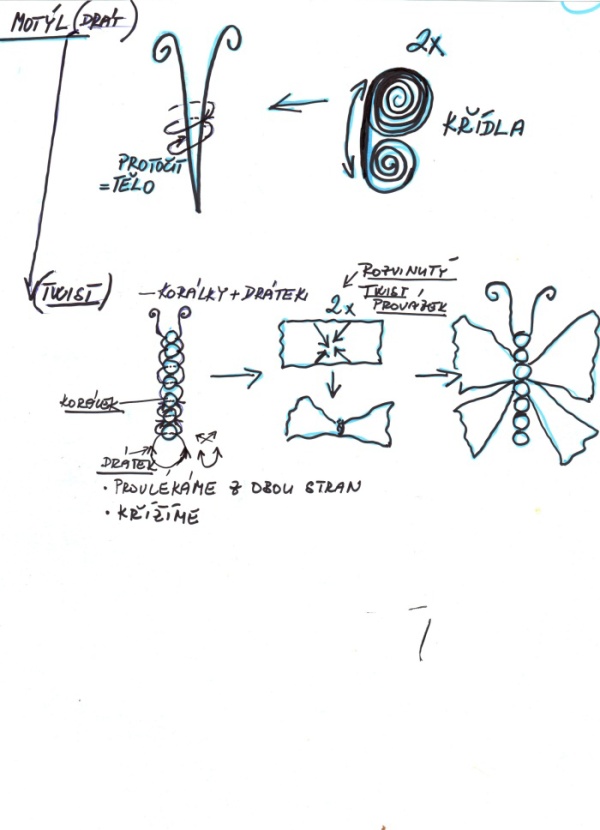 MOTÝL (DRÁT)
2x
KŘÍDLA
PROTOČIT
= TĚLO
(TWIST)
- KORÁLKY + DRÁTEK
ROZVINUTÝ
TWIST
PROVÁZEK
2x
KORÁLEK
DRÁTEK
• PROVLÉKÁME Z OBOU STRAN
• KŘÍŽÍME